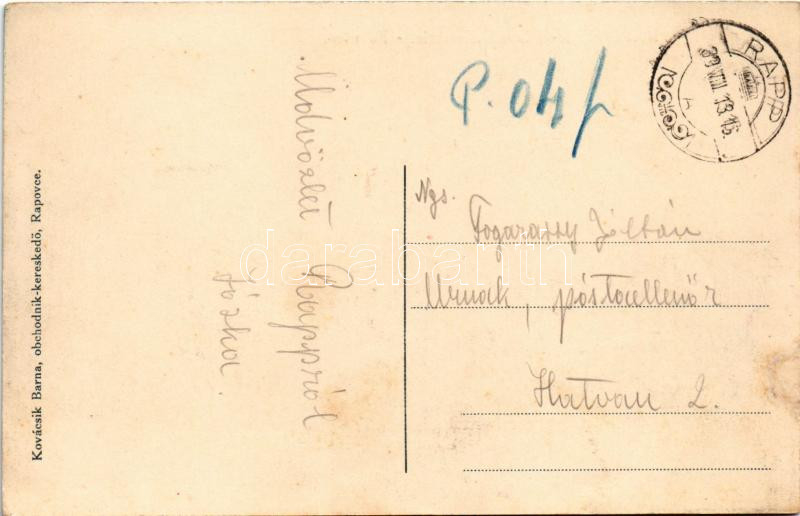 Kovácsik Barna, obchodnik-kereskedő, Rapovce.
Üdvözlet Rappról
Józka
P. 04 f
RAPP
39 VIII 13.15.
Ngs.
Fogarassy Zoltán
Urnak, póstaellenőr
Hatvan 2.
darabanth